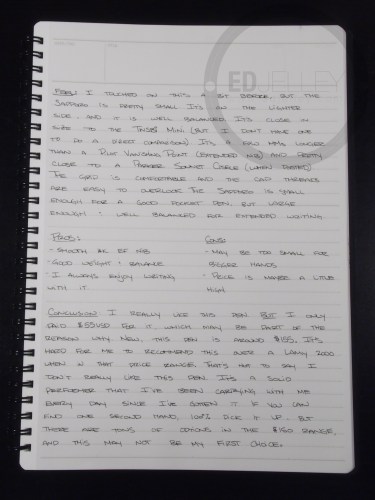 ED JELLEY
FEEL: I TOUCHED ON THIS A BIT BEFORE, BUT THE
SAPPORO IS PRETTY SMALL. IT'S ON THE LIGHTER
SIDE, AND IT IS WELL BALANCED. IT'S CLOSE IN
SIZE TO THE TWSBI MINI (BUT I DON'T HAVE ONE
TO DO A DIRECT COMPARISON). IT'S A FEW MMS LONGER
THAN A PILOT VANISHING POINT (EXTENDED NIB) AND PRETTY
CLOSE TO A PARKER SONNET CISELE (WHEN POSTED).
THE GRIP IS COMFORTABLE AND THE CAP THREADS
ARE EASY TO OVERLOOK. THE SAPPORO IS SMALL
ENOUGH FOR A GOOD POCKET PEN, BUT LARGE
ENOUGH + WELL BALANCED FOR EXTENDED WRITING.
PROS:
- SMOOTH 14K EF NIB
- GOOD WEIGHT + BALANCE
- I ALWAYS ENJOY WRITING
WITH IT
CONS:
- MAY BE TOO SMALL FOR
BIGGER HANDS
- PRICE IS MAYBE A LITTLE
HIGH
CONCLUSION: I REALLY LIKE THIS PEN. BUT I ONLY
PAID $55USD FOR IT, WHICH MAY BE PART OF THE
REASON WHY. NEW, THIS PEN IS AROUND $155. IT'S
HARD FOR ME TO RECOMMEND THIS OVER A LAMY 2000
WHEN IN THAT PRICE RANGE. THAT'S NOT TO SAY I
DON'T REALLY LIKE THIS PEN. IT'S A SOLID
PERFORMER THAT I'VE BEEN CARRYING WITH ME
EVERY DAY SINCE I'VE GOTTEN IT. IF YOU CAN
FIND ONE SECOND HAND, 100% PICK IT UP. BUT
THERE ARE TONS OF OPTIONS IN THE $150 RANGE,
AND THIS MAY NOT BE MY FIRST CHOICE.